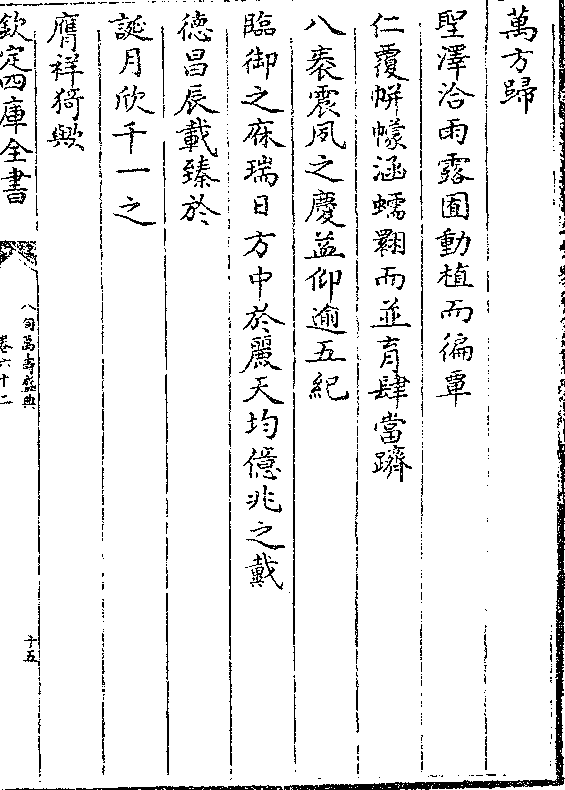 萬方歸
聖澤洽雨露囿動植而徧覃
仁覆帡幪涵蠕翾而並育肆當躋
八袠震夙之慶益仰逾五紀
臨御之庥瑞日方中於麗天均億兆之戴
德昌辰載臻於
誕月欣千一之
膺祥猗歟
欽定四庫全書
八旬萬壽盛典
卷六十二
十五